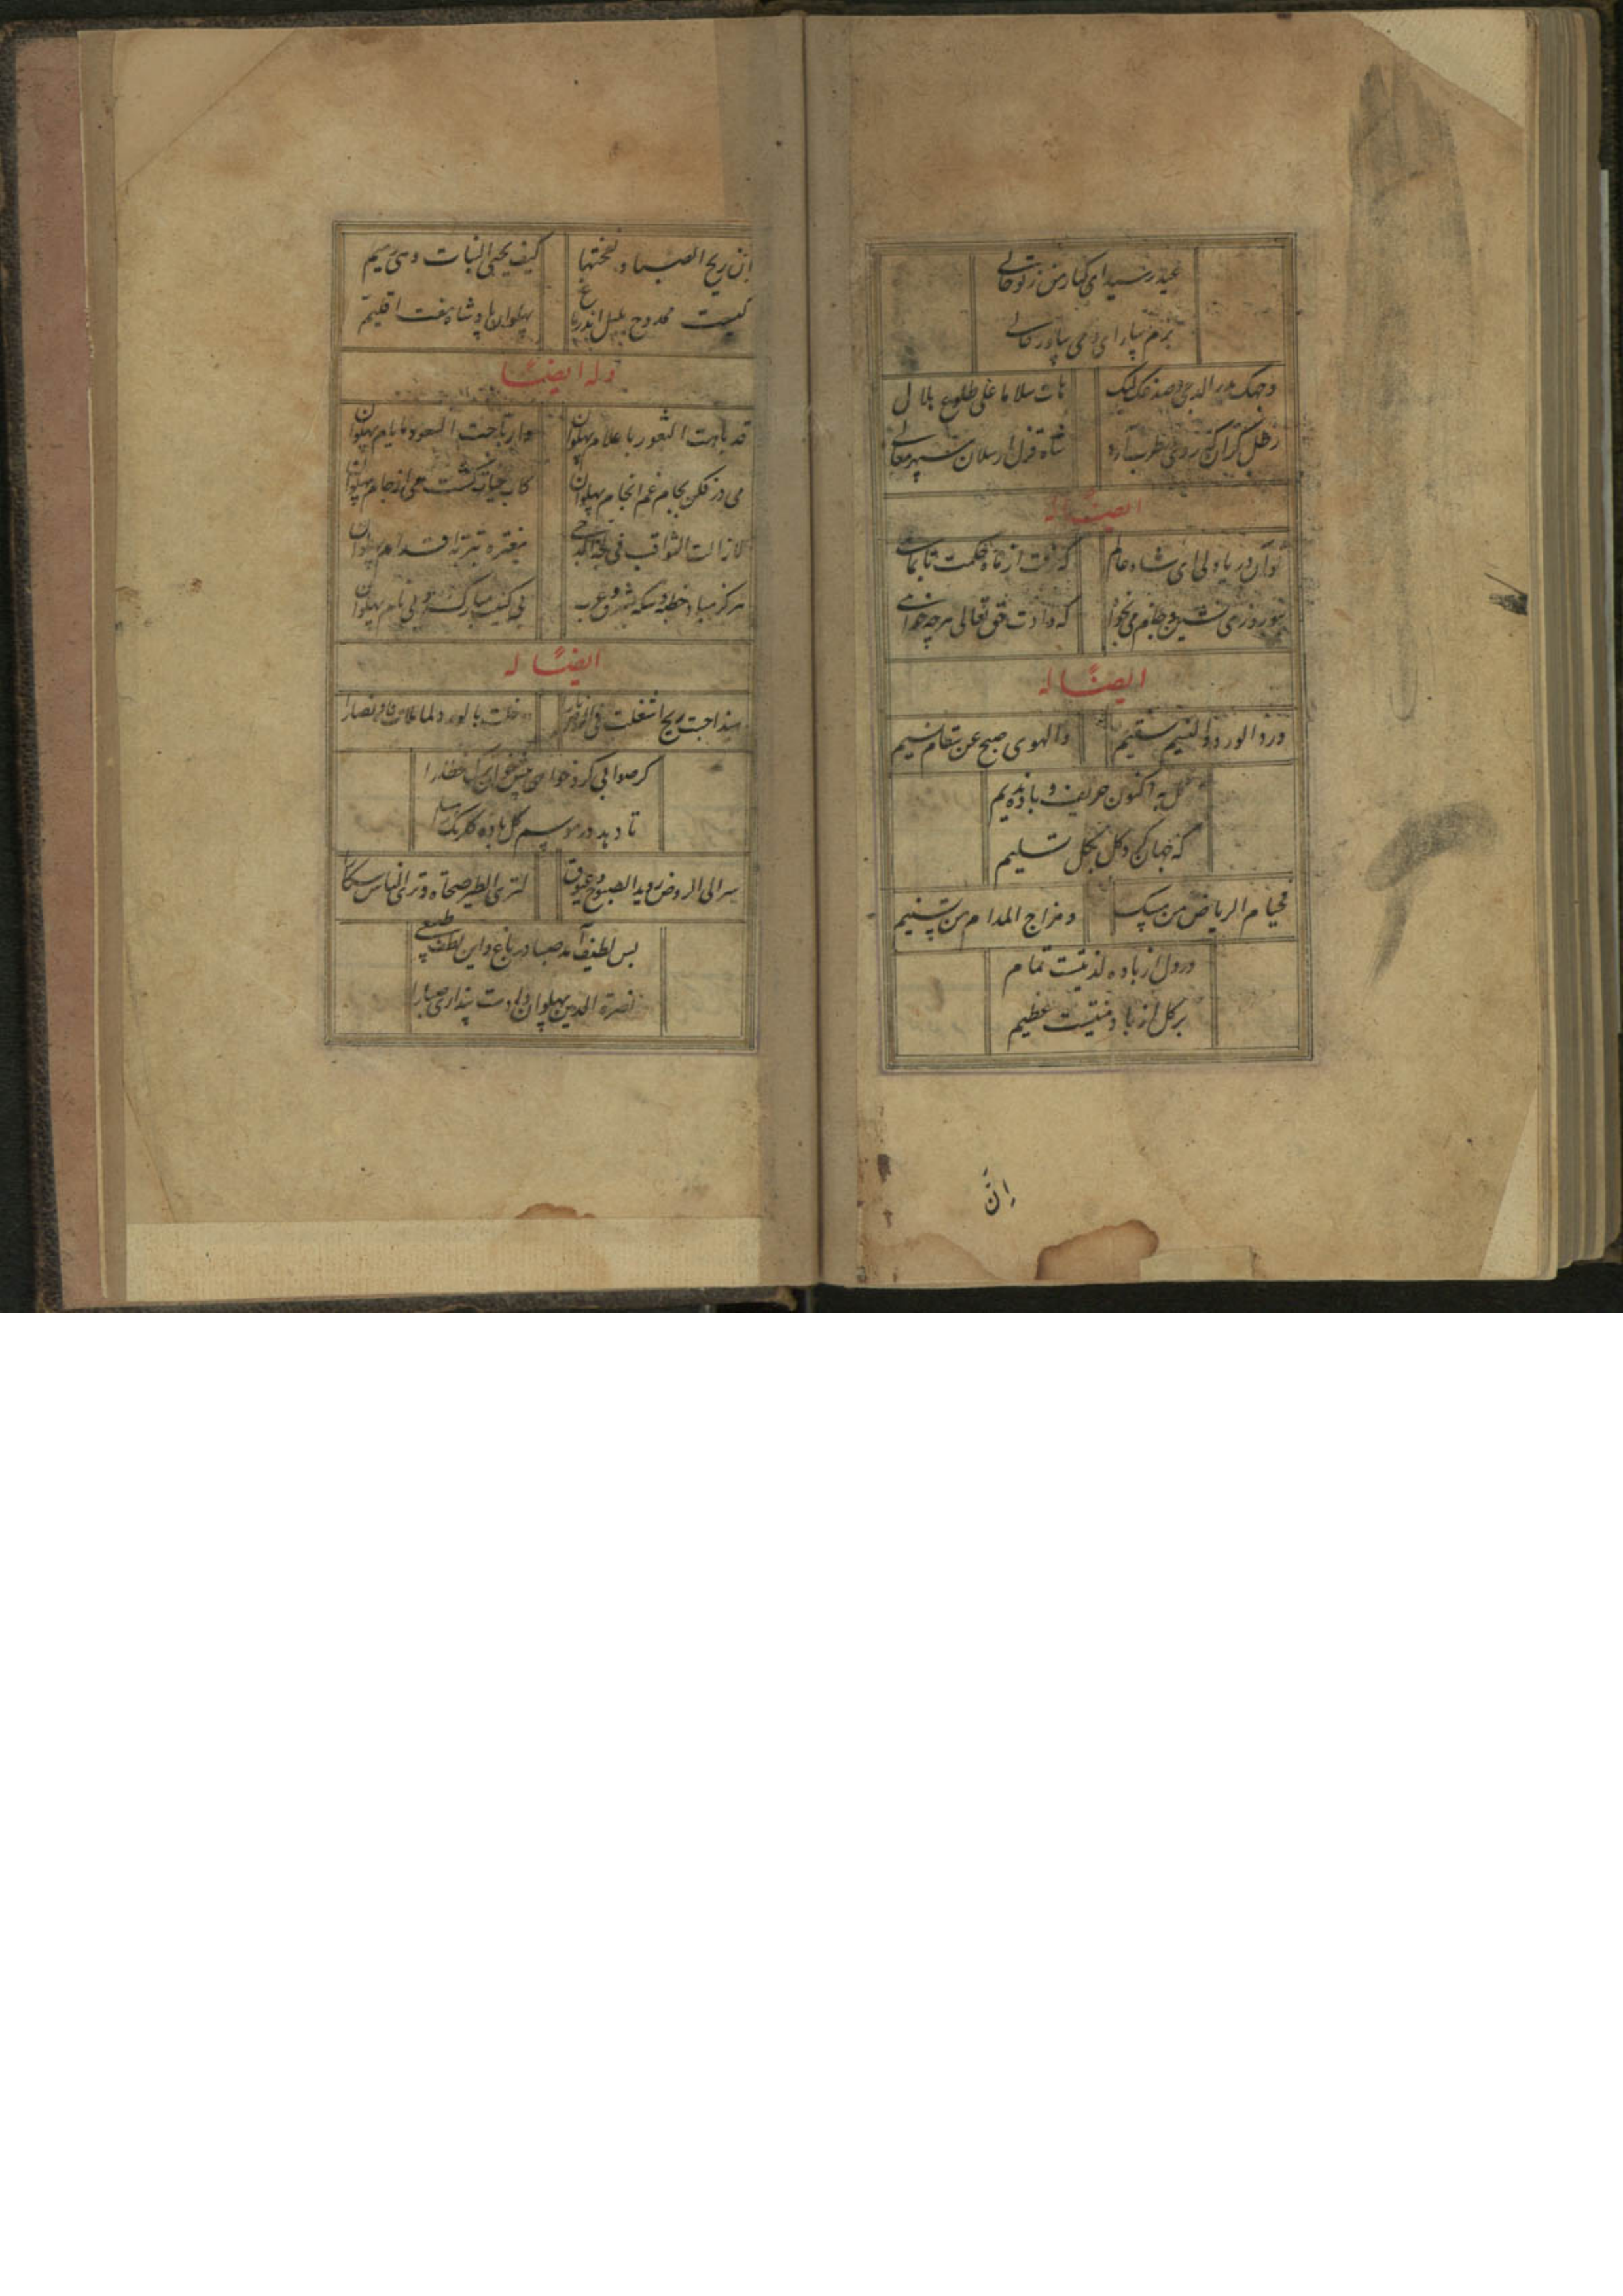 عید رسید ای نگار من ز تو خالی
بزم بیارای و می بیاور حالی
وجهک بدر الدجی وصدغک لیل
هات سلاما علی طلوع هلال
رطل گران که روی طرب آرد
شاه قزل ارسلان سپهر معالی
ایضا له
تو آن دریا دلی ای شاه عالم
که رفت از ماه حکمت تا بماهی
بنوروز می نشین و جام می خواه
که دادت حق تعالی هرچه خواهی
ایضا له
ورد الورد والنسیم سقیم
والهوی صح عن سقام نسیم
گل به اکنون حریف و باده ندیم
که جهان کرد کل بگل تسلیم
فخیام الریاض من
ومزاج المدام من تسنیم
در دل از باده لذتیست تمام
بر گل از باد منتیست عظیم
إنّ
إن ریح الصبا ونفختها
کیف یحیی النبات وهی رمیم
کیست ممدوح بلبل اندر باغ
پهلوان پادشاه هفت اقلیم
وله ایضا
قد باهت الثغور باعلام پهلوان
وارتاحت السعود بایام پهلوان
می در فکن بجام غم انجام پهلوان
کاب حیات گشت می از جام پهلوان
لازالت الثواقب فی لجة الدجی
مفترة بتربة اقدام پهلوان
هرگز مباد خطبه و سکه بشرق و غرب
بی کنیت مبارک و بی نام پهلوان
ایضا له
دخلت بالورد لما
گر صوابی کرد خواهی پیش خوان ترک خطا را
تا دهد در موسم گل باده گلرنگ ما را
سر الی الروض روید الصبوح وغبوق
لتری الطیر صحاة وتری الناس سکارا
بس لطیف آمد صبا در باغ و این لطف طبیعی
نصرة الدین پهلوان دادست پنداری صبا را